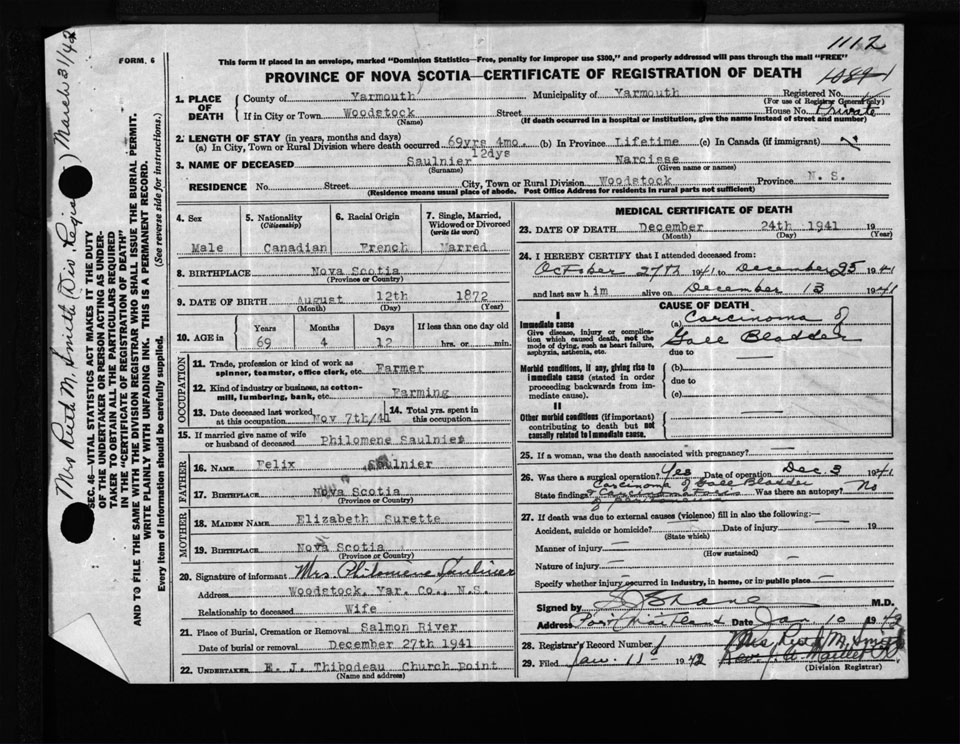 1112
FORM. 6
This form if placed in an envelope, marked "Dominion Statistics—Free, penalty for improper use $300," and properly addressed will pass through the mail "FREE"
PROVINCE OF NOVA SCOTIA—CERTIFICATE OF REGISTRATION OF DEATH
1. PLACE OF DEATH
County of Yarmouth Municipality of Yarmouth Registered No.
(For use of Registrar General only)
If in City or Town Woodstock Street House No. Private
(Name) (If death occurred in a hospital or institution, give the name instead of street and number)
2. LENGTH OF STAY (in years, months and days)
(a) In City, Town or Rural Division where death occurred 69yrs 4mo. 12dys (b) In Province Lifetime (c) In Canada (if immigrant)
3. NAME OF DECEASED Saulnier Narcisse
(Surname) (Given name or names)
RESIDENCE No. Street City, Town or Rural Division Woodstock Province N. S.
(Residence means usual place of abode. Post Office Address for residents in rural parts not sufficient)
4. Sex
Male
5. Nationality
(Citizenship)
Canadian
6. Racial Origin
French
7. Single, Married, Widowed or Divorced
(write the word)
Marred
8. BIRTHPLACE Nova Scotia
(Province or Country)
9. DATE OF BIRTH August 12th 1872
(Month) (Day) (Year)
10. AGE in
Years Months Days If less than one day old
69 4 12 hrs. or min.
OCCUPATION
11. Trade, profession or kind of work as spinner, teamster, office clerk, etc. Farmer
12. Kind of industry or business, as cotton-mill, lumbering, bank, etc. Farming
13. Date deceased last worked at this occupation Nov 7th/41
14. Total yrs. spent in this occupation
15. If married give name of wife or husband of deceased Philomene Saulnier
FATHER
16. NAME Felix Saulnier
17. BIRTHPLACE Nova Scotia
MOTHER
18. MAIDEN NAME Elizabeth Surette
19. BIRTHPLACE Nova Scotia
(Province or Country)
20. Signature of informant Mrs. Philomene Saulnier
Address Woodstock, Yar. Co., N.S.
Relationship to deceased Wife
21. Place of Burial, Cremation or Removal Salmon River
Date of burial or removal December 27th 1941
22. UNDERTAKER E. J. Thibodeau Church Point
(Name and address)
MEDICAL CERTIFICATE OF DEATH
23. DATE OF DEATH December 24th 1941 19
(Month) (Day) (Year)
24. I HEREBY CERTIFY that I attended deceased from:
October 27th 1941 to December 25 1941
and last saw him alive on December 13 1941
CAUSE OF DEATH
I
Immediate cause (a) Carcinoma of
Give disease, injury or complication which caused death, not the mode of dying, such as heart failure, asphyxia, asthenia, etc.
Gall Bladder
due to
Morbid conditions, if any, giving rise to immediate cause (stated in order proceeding backwards from immediate cause).
(b)
due to
(c)
II
Other morbid conditions (if important) contributing to death but not causally related to immediate cause.
25. If a woman, was the death associated with pregnancy?
26. Was there a surgical operation? Yes Date of operation Dec 3 1941
Carcinoma of Gall Bladder
State findings Was there an autopsy? No
27. If death was due to external causes (violence) fill in also the following:—
Accident, suicide or homicide? Date of injury 19
(State which)
Manner of injury
(How sustained)
Nature of injury
Specify whether injury occurred in industry, in home, or in public place
Signed by M.D.
Address Port Maitland Date Jan 10 19
28. Registrar's Record Number Mrs Ruth M. Smith
29. Filed Jan. 11 1942
(Division Registrar)
Mrs Ruth M. Smith (Div. Regis) March 31/42
SEC. 46—VITAL STATISTICS ACT MAKES IT THE DUTY
OF THE UNDERTAKER OR PERSON ACTING AS UNDER-
TAKER TO OBTAIN ALL THE PARTICULARS REQUIRED
IN THE "CERTIFICATE OF REGISTRATION OF DEATH"
AND TO FILE THE SAME WITH THE DIVISION REGISTRAR WHO SHALL ISSUE THE BURIAL PERMIT.
WRITE PLAINLY WITH UNFADING INK. THIS IS A PERMANENT RECORD.
Every item of Information should be carefully supplied. (See reverse side for instructions.)